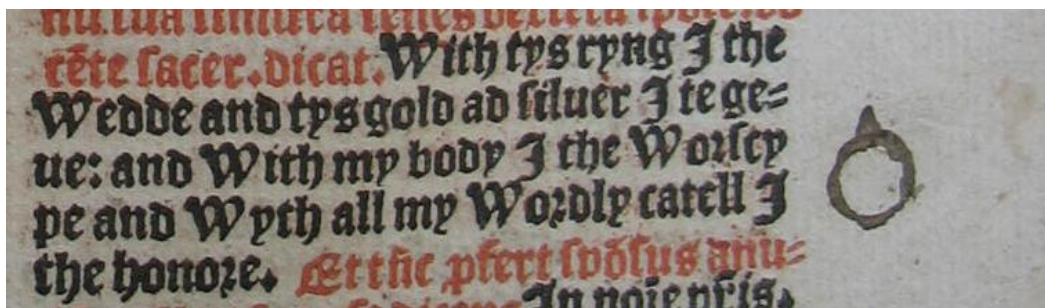 rēte sacer. dicat. With tys ryng I the
Wedde and tys gold ad siluer I te ge=
ue: and With my body I the Worscy
pe and Wyth all my Wordly catell I
the honore. Et tūc pfert spōsus anu=
In noīe pris.